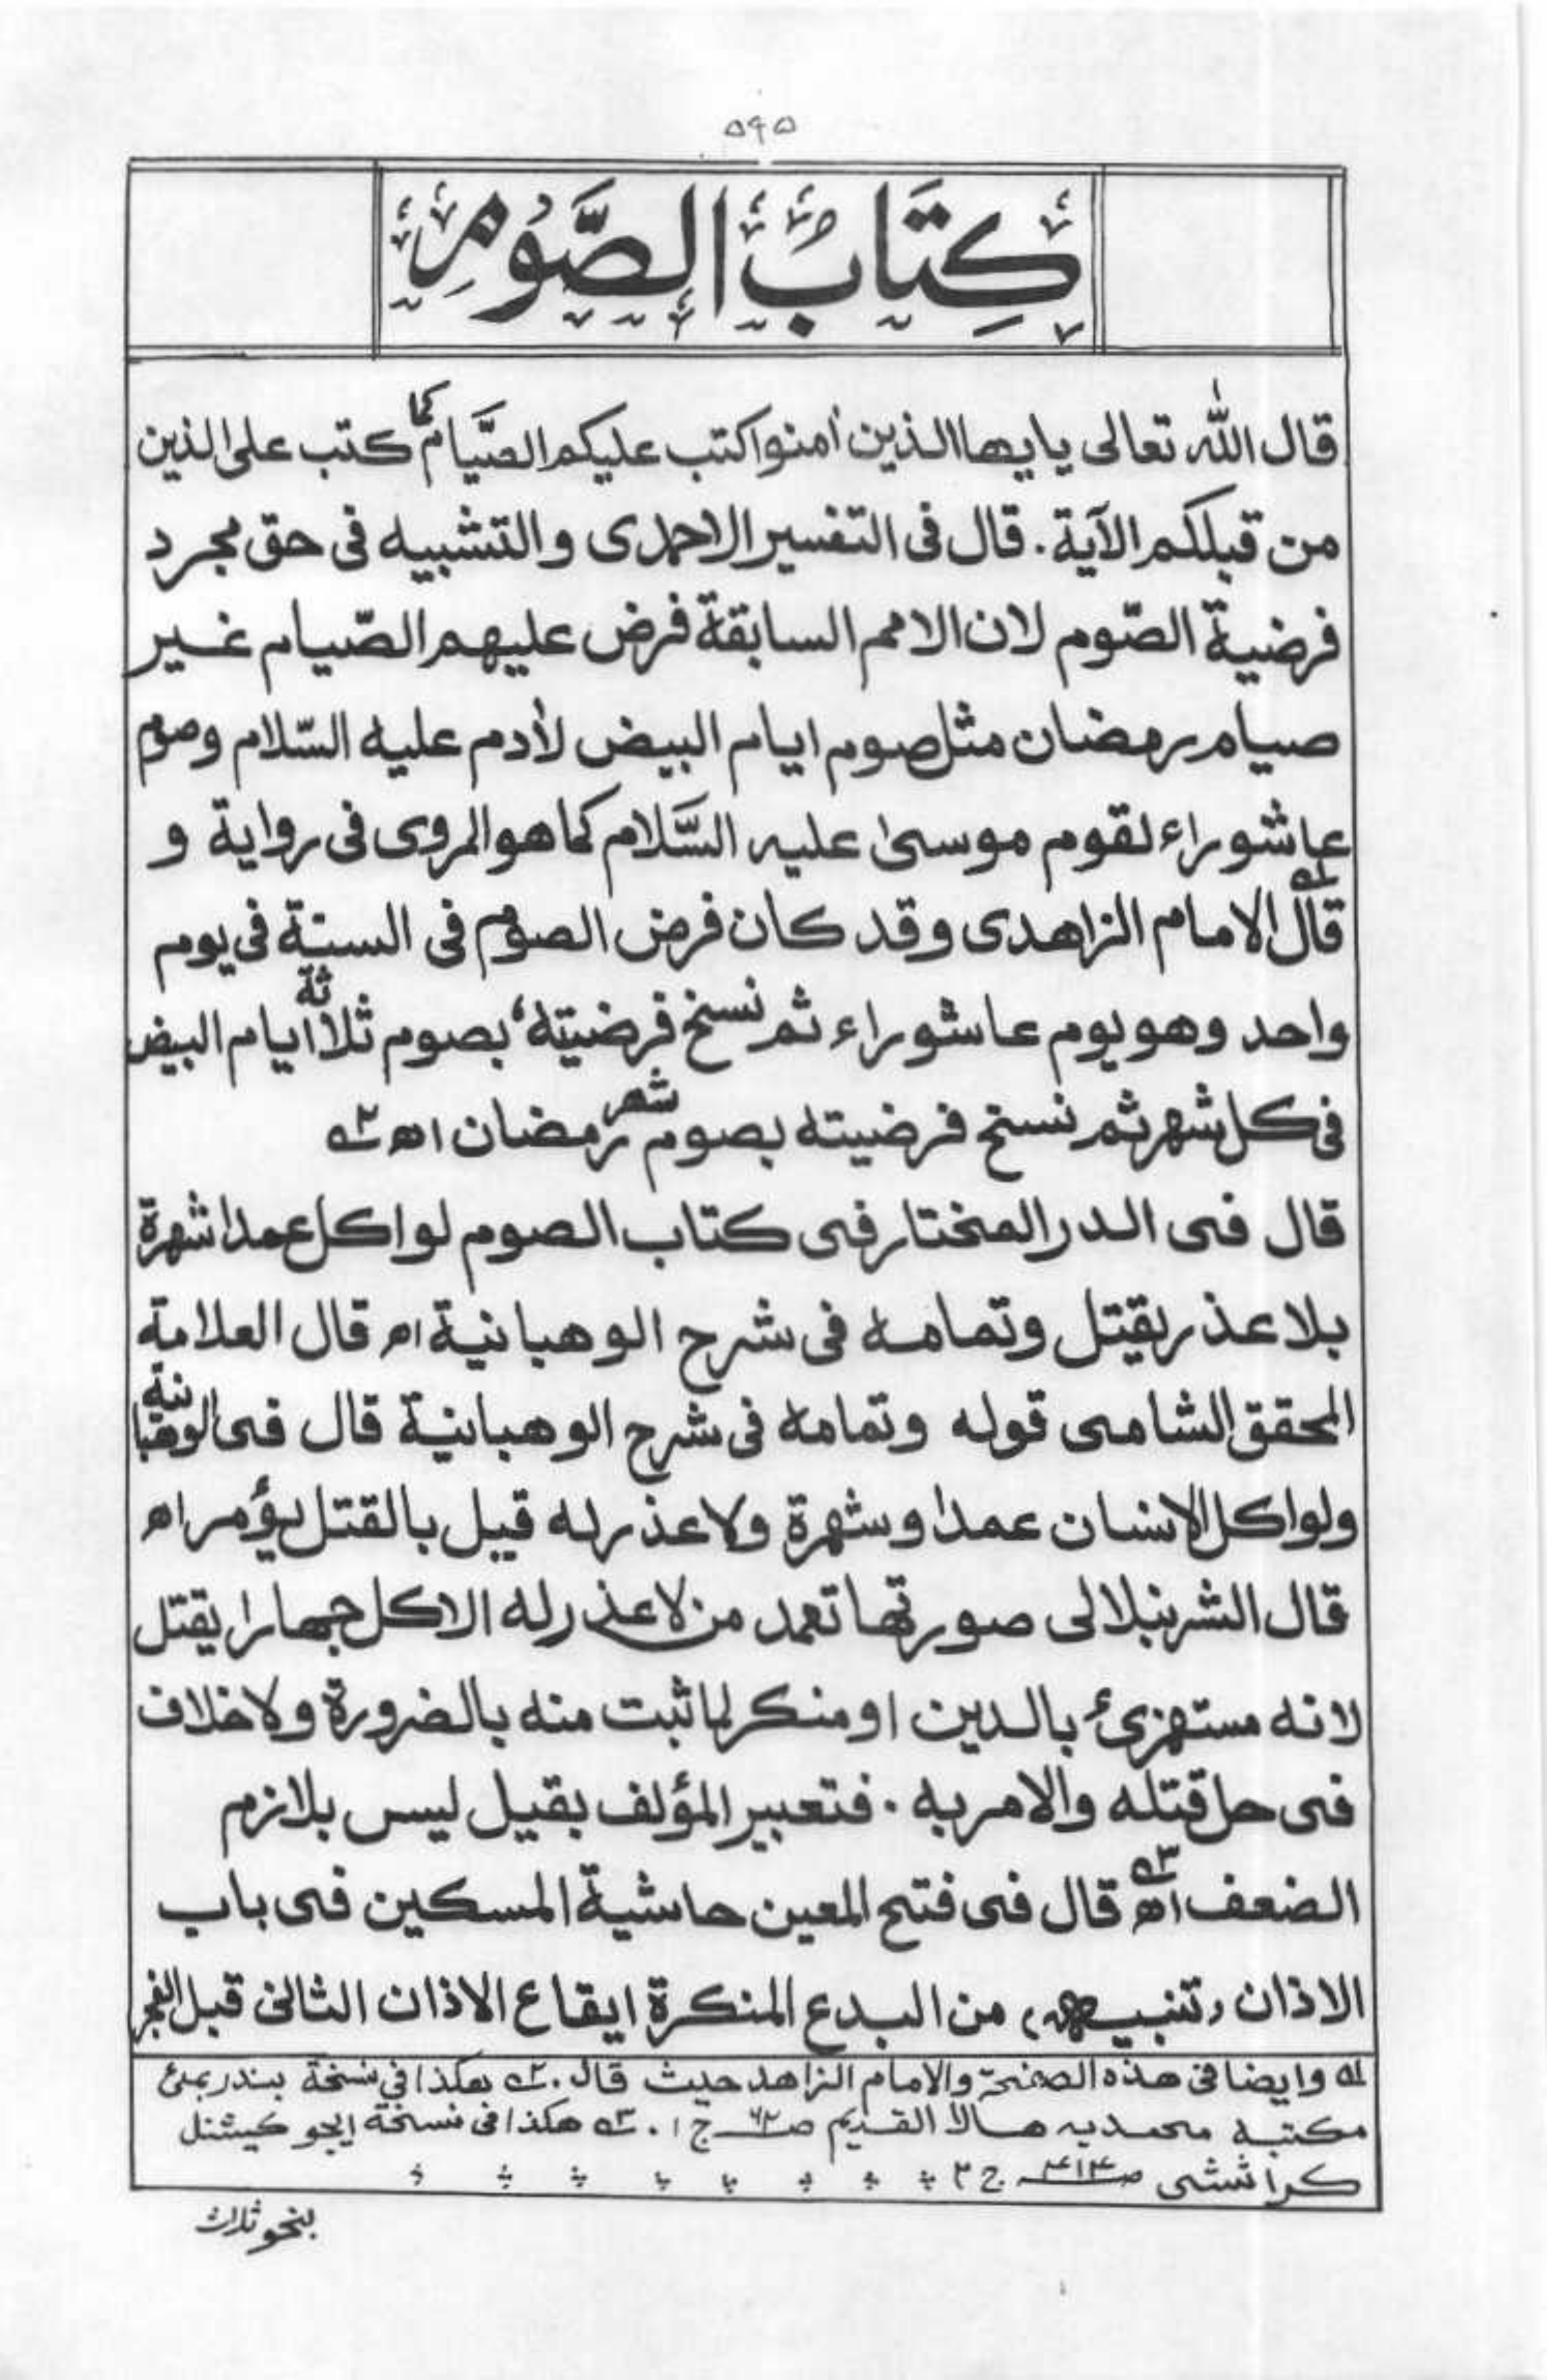 ۵۹۵
كِتَابُ الصَّوْمِ
قال الله تعالى يايها الذين أمنوا كتب عليكم الصّيام كما كتب على الذين
من قبلكم الآية . قال فى التفسير الاحمدى والتشبيه فى حق مجرد
فرضية الصّوم لان الامم السابقة فرض عليهم الصّيام غير
صيام رمضان مثل صوم ايام البيض لأدم عليه السّلام وصوم
عاشوراء لقوم موسىٰ عليه السَّلام كما هو المروى فى رواية و
قال۱ الامام الزاهدى وقد كان فرض الصوم فى السنة فى يوم
واحد وهو يوم عاشوراء ثم نسخ فرضيته، بصوم ثلاثة ايام البيض
فى كل شهر ثم نسخ فرضيته بصوم شهر رمضان اھ ۲
قال فى الدر المختار فى كتاب الصوم لو اكل عمدا شهرة
بلا عذر يقتل وتمامه فى شرح الوهبانية اھ قال العلامة
المحقق الشامى قوله وتمامه فى شرح الوهبانية قال فى الوهبانية
ولو اكل الانسان عمدا وشهرة ولا عذر له قيل بالقتل يؤمر اھ
قال الشرنبلالى صورتها تعمد من لا عذر له الاكل جهارا يقتل
لانه مستهزئ بالدين او منكر لما ثبت منه بالضرورة ولا خلاف
فى حل قتله والامر به . فتعبير المؤلف بقيل ليس بلازم
الضعف اھ۳ قال فى فتح المعين حاشية المسكين فى باب
الاذان (تنبيه) من البدع المنكرة ايقاع الاذان الثانى قبل الفجر
۱ وايضا فى هذه الصفحة والامام الزاهد حيث قال . ۲ هكذا فى نسخة بندر بمبئ
مكتبه محمديه هالا القديم ص ۶۲ ج ۱ . ۳ هكذا فى نسخة ايجوكيشنل
كراتشى ص ۴۱۳ ج ۲
بنحو ثلاث